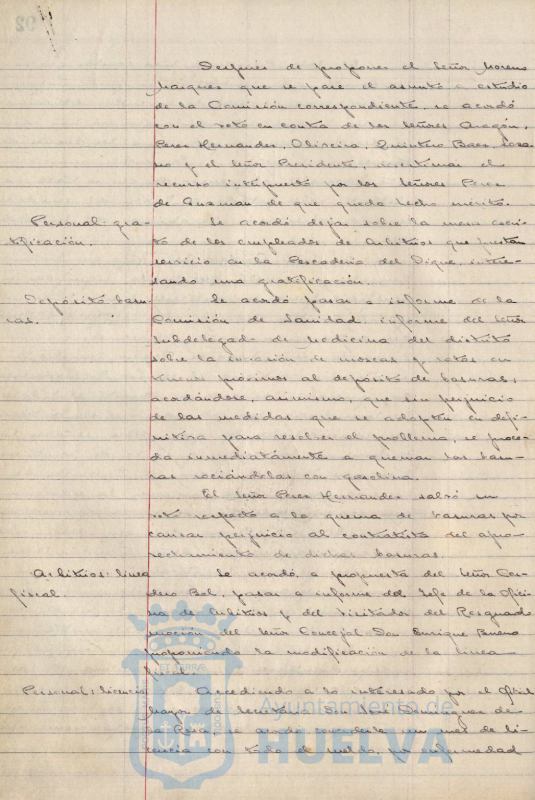 92
Después de proponer el Señor Moreno
Marques que se pase el asunto a estudio
de la Comisión correspondiente, se acordó
con el voto en contra de los Señores Aragón,
Perez Hernandez, Oliveira, Quintero Baez,
no y el Señor Presidente, desestimar el
recurso interpuesto por los Señores Perez
de Guzman de que queda hecho mérito.
Personal: gra- Se acordó dejar sobre la mesa escri-
tificación. to de los empleados de Arbitrios que prestan
servicio en la Pescadería del Dique, intere-
sando una gratificación.
Depósito basu- Se acordó pasar a informe de la
ras. Comisión de Sanidad informe del Señor
Subdelegado de Medicina del distrito
sobre la invasión de moscas y ratas en
terrenos próximos al depósito de basuras;
acordándose, asimismo, que sin perjuicio
de las medidas que se adopten en defi-
nitiva para resolver el problema, se proce-
da inmediatamente a quemar las basu-
ras rociándolas con gasolina.
El Señor Perez Hernandez salvó su
voto respecto a la quema de basuras por
causar perjuicio al contratista del apro-
vechamiento de dichas basuras.
Arbitrios: linea Se acordó, a propuesta del Señor Cor-
fiscal. dero Bel, pasar a informe del Jefe de la Ofici-
na de Arbitrios y del Visitador del Resguardo
moción del Señor Concejal Don Enrique Bueno
proponiendo la modificación de la linea
fiscal.
Personal: licencia Accediendo a lo interesado por el Oficial
Mayor de Secretaria Don José Dominguez de
la Rosa, se acordó concederle un mes de li-
cencia con todo el sueldo, por enfermedad
Ayuntamiento de
HUELVA